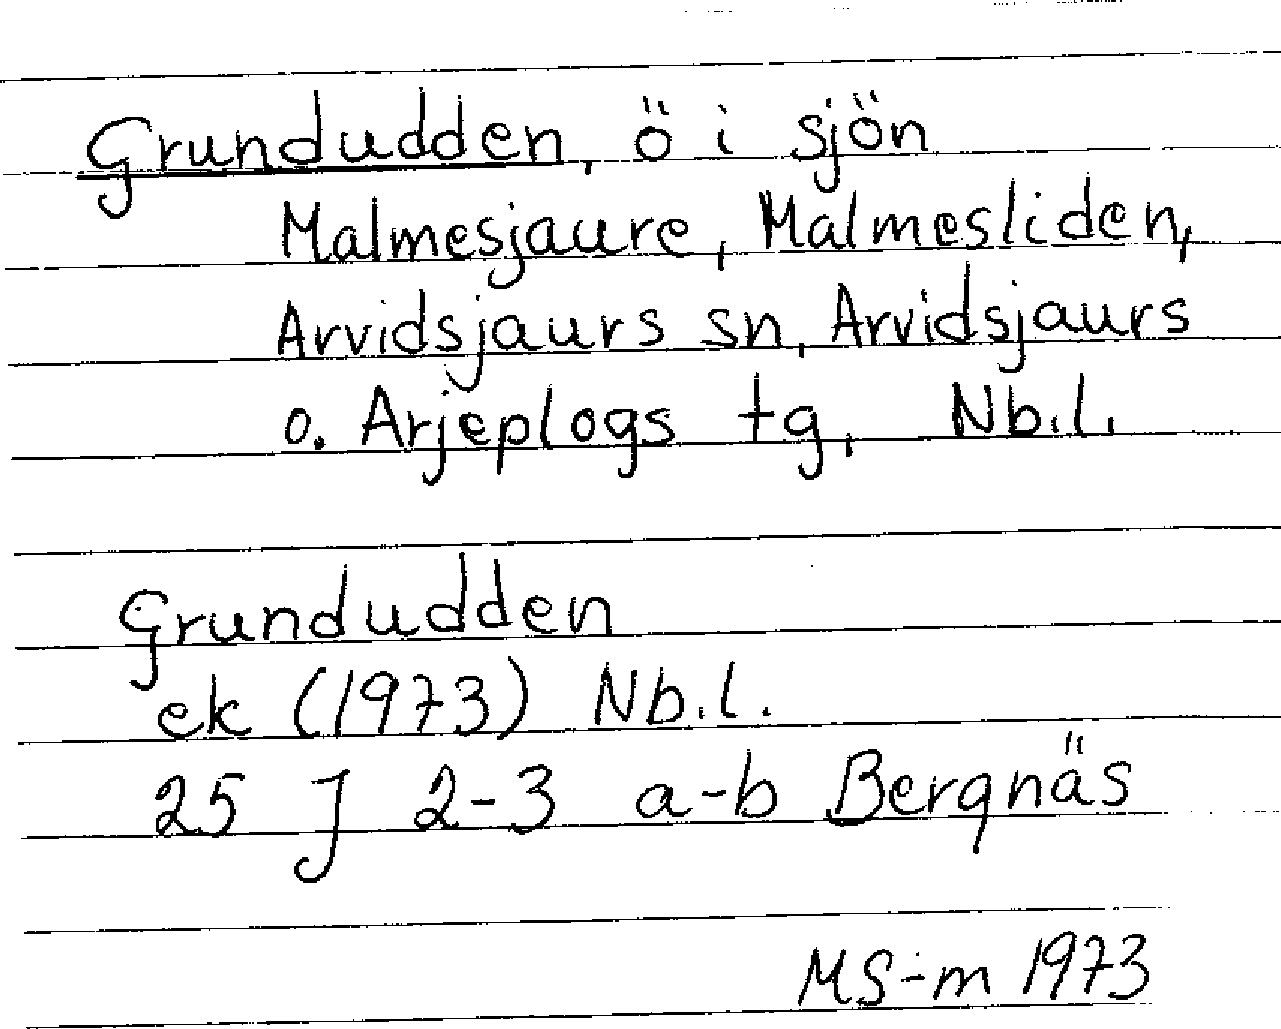 Grundudden, ö i sjön
Malmesjaure, Malmesliden,
Arvidsjaurs sn, Arvidsjaurs
o. Arjeplogs tg, Nb.l.
Grundudden
ek (1973) Nb.l.
25 J 2-3 a-b Bergnäs
MS-m 1973